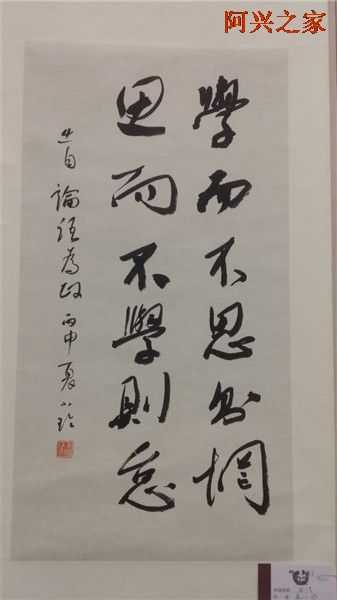 阿兴之家
學而不思則惘
思而不學則怠
論語為政 丙申夏